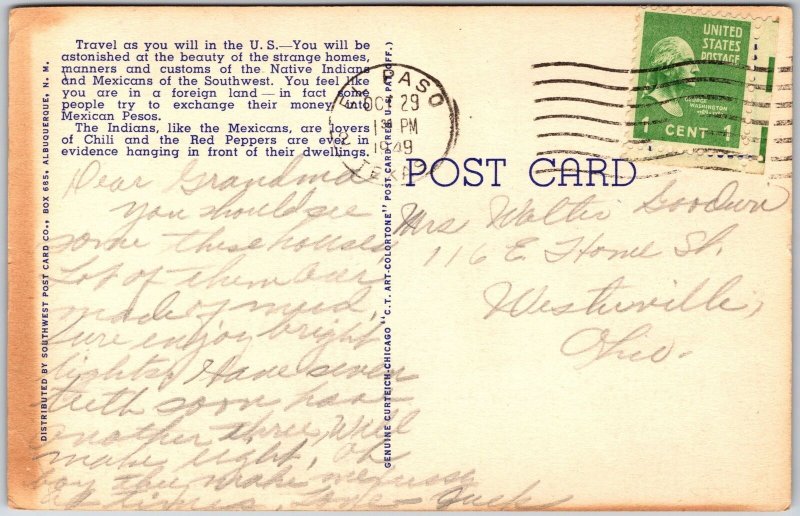 Travel as you will in the U.S.—You will be
astonished at the beauty of the strange homes,
manners and customs of the Native Indians
and Mexicans of the Southwest. You feel like
you are in a foreign land — in fact some
people try to exchange their money into
Mexican Pesos.
The Indians, like the Mexicans, are lovers
of Chili and the Red Peppers are ever in
evidence hanging in front of their dwellings.
DISTRIBUTED BY SOUTHWEST POST CARD CO., BOX 685, ALBUQUERQUE, N. M.
Dear Grandma
You should see
some these houses
Lot of them are
made of mud,
Sure enjoy bright
lights, Have seven
teeth soon have
another three, Will
make eight, Oh
boy they make me
at times, Love - Jack
GENUINE CURTEICH-CHICAGO "C.T. ART-COLORTONE" POST CARD (REG. U.S. PAT. OFF.)
EL PASO
OCT 29
1 PM
1949
TEXAS
UNITED
STATES
POSTAGE
GEORGE
WASHINGTON
1 CENT
POST CARD
Mrs Walter Goodwin
116 E. Home St.
Westerville,
Ohio.